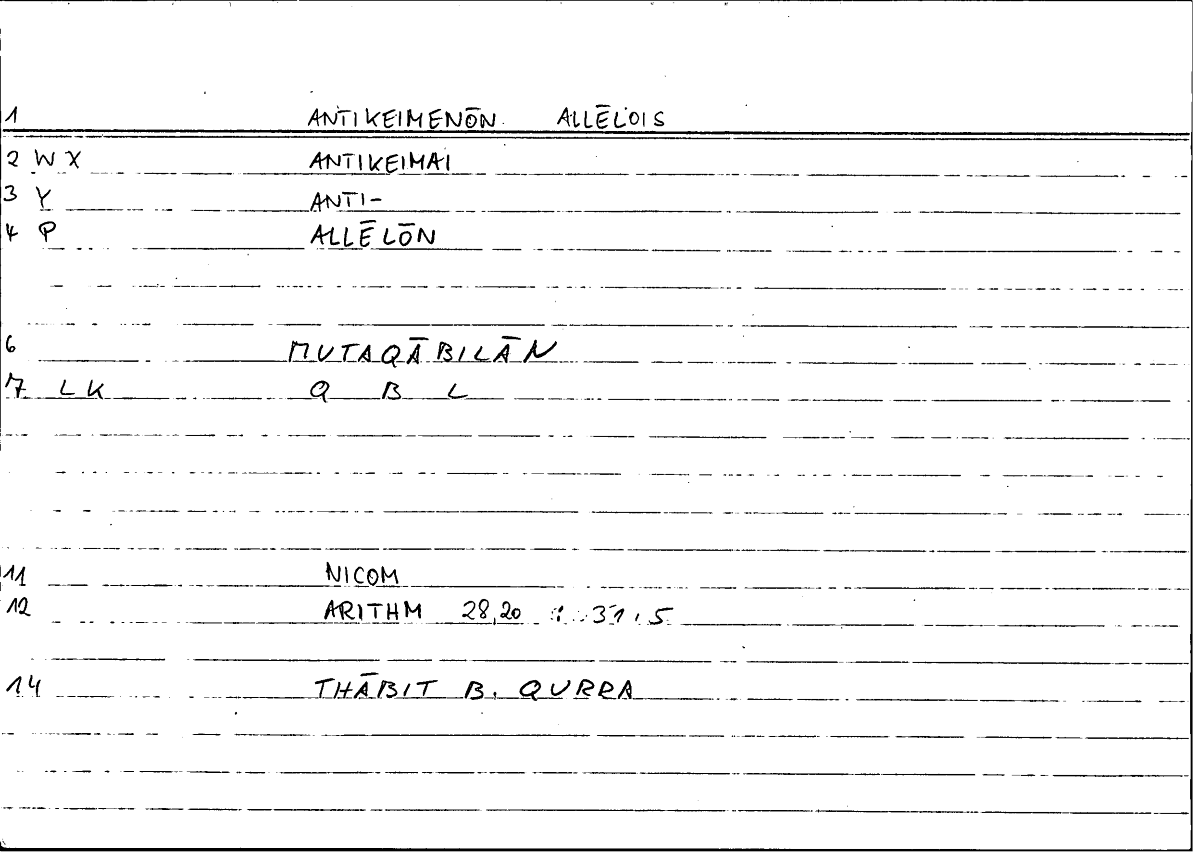 1 ANTIKEIMENŌN ALLĒLOIS
2 W X ANTIKEIMAI
3 Y ANTI-
4 P ALLĒLŌN
6 MUTAQĀBILĀN
7 L K Q B L
11 NICOM
12 ARITHM 28,20 : 31,5
14 THĀBIT B. QURRA